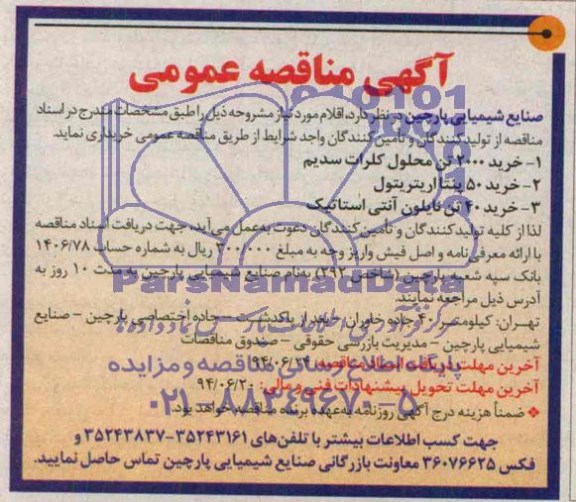 آگهی مناقصه عمومی
صنایع شیمیایی پارچین در نظر دارد، اقلام مورد نیاز مشروحه ذیل را طبق مشخصات مندرج در اسناد
مناقصه از تولیدکنندگان و تأمین‌کنندگان واجد شرایط از طریق مناقصه عمومی خریداری نماید.
۱- خرید ۲۰۰۰ تن محلول کلرات سدیم
۲- خرید ۵۰ پنتا اریتریتول
۳- خرید ۴۰ تن نایلون آنتی استاتیک
لذا از کلیه تولیدکنندگان و تأمین‌کنندگان دعوت به‌عمل می‌آید، جهت دریافت اسناد مناقصه
با ارائه معرفی‌نامه و اصل فیش واریز وجه به مبلغ ۳۰۰،۰۰۰ ریال به شماره حساب ۱۴۰۶/۷۸
بانک سپه شعبه پارچین (شاخص ۲۹۲) به‌نام صنایع شیمیایی پارچین به مدت ۱۰ روز به
آدرس ذیل مراجعه نمایند.
ParsNamadData
تهران: کیلومتر ۴۰ جاده خاوران - بعد از پاکدشت - جاده اختصاصی پارچین - صنایع
شیمیایی پارچین - مدیریت بازرسی حقوقی - صندوق مناقصات
آخرین مهلت دریافت اسناد مناقصه: ۹۴/۰۶/۲۴
پایگاه اطلاع رسانی مناقصه و مزایده
آخرین مهلت تحویل پیشنهادات فنی و مالی: ۹۴/۰۶/۲۰
۰۲۱-۸۸۳۴۹۶۷۰-۵
❖ ضمناً هزینه درج آگهی روزنامه به‌عهده برنده مناقصه خواهد بود.
جهت کسب اطلاعات بیشتر با تلفن‌های ۳۵۲۴۳۱۶۱-۳۵۲۴۳۸۳۷ و
فکس ۳۶۰۷۶۶۲۵ معاونت بازرگانی صنایع شیمیایی پارچین تماس حاصل نمایید.